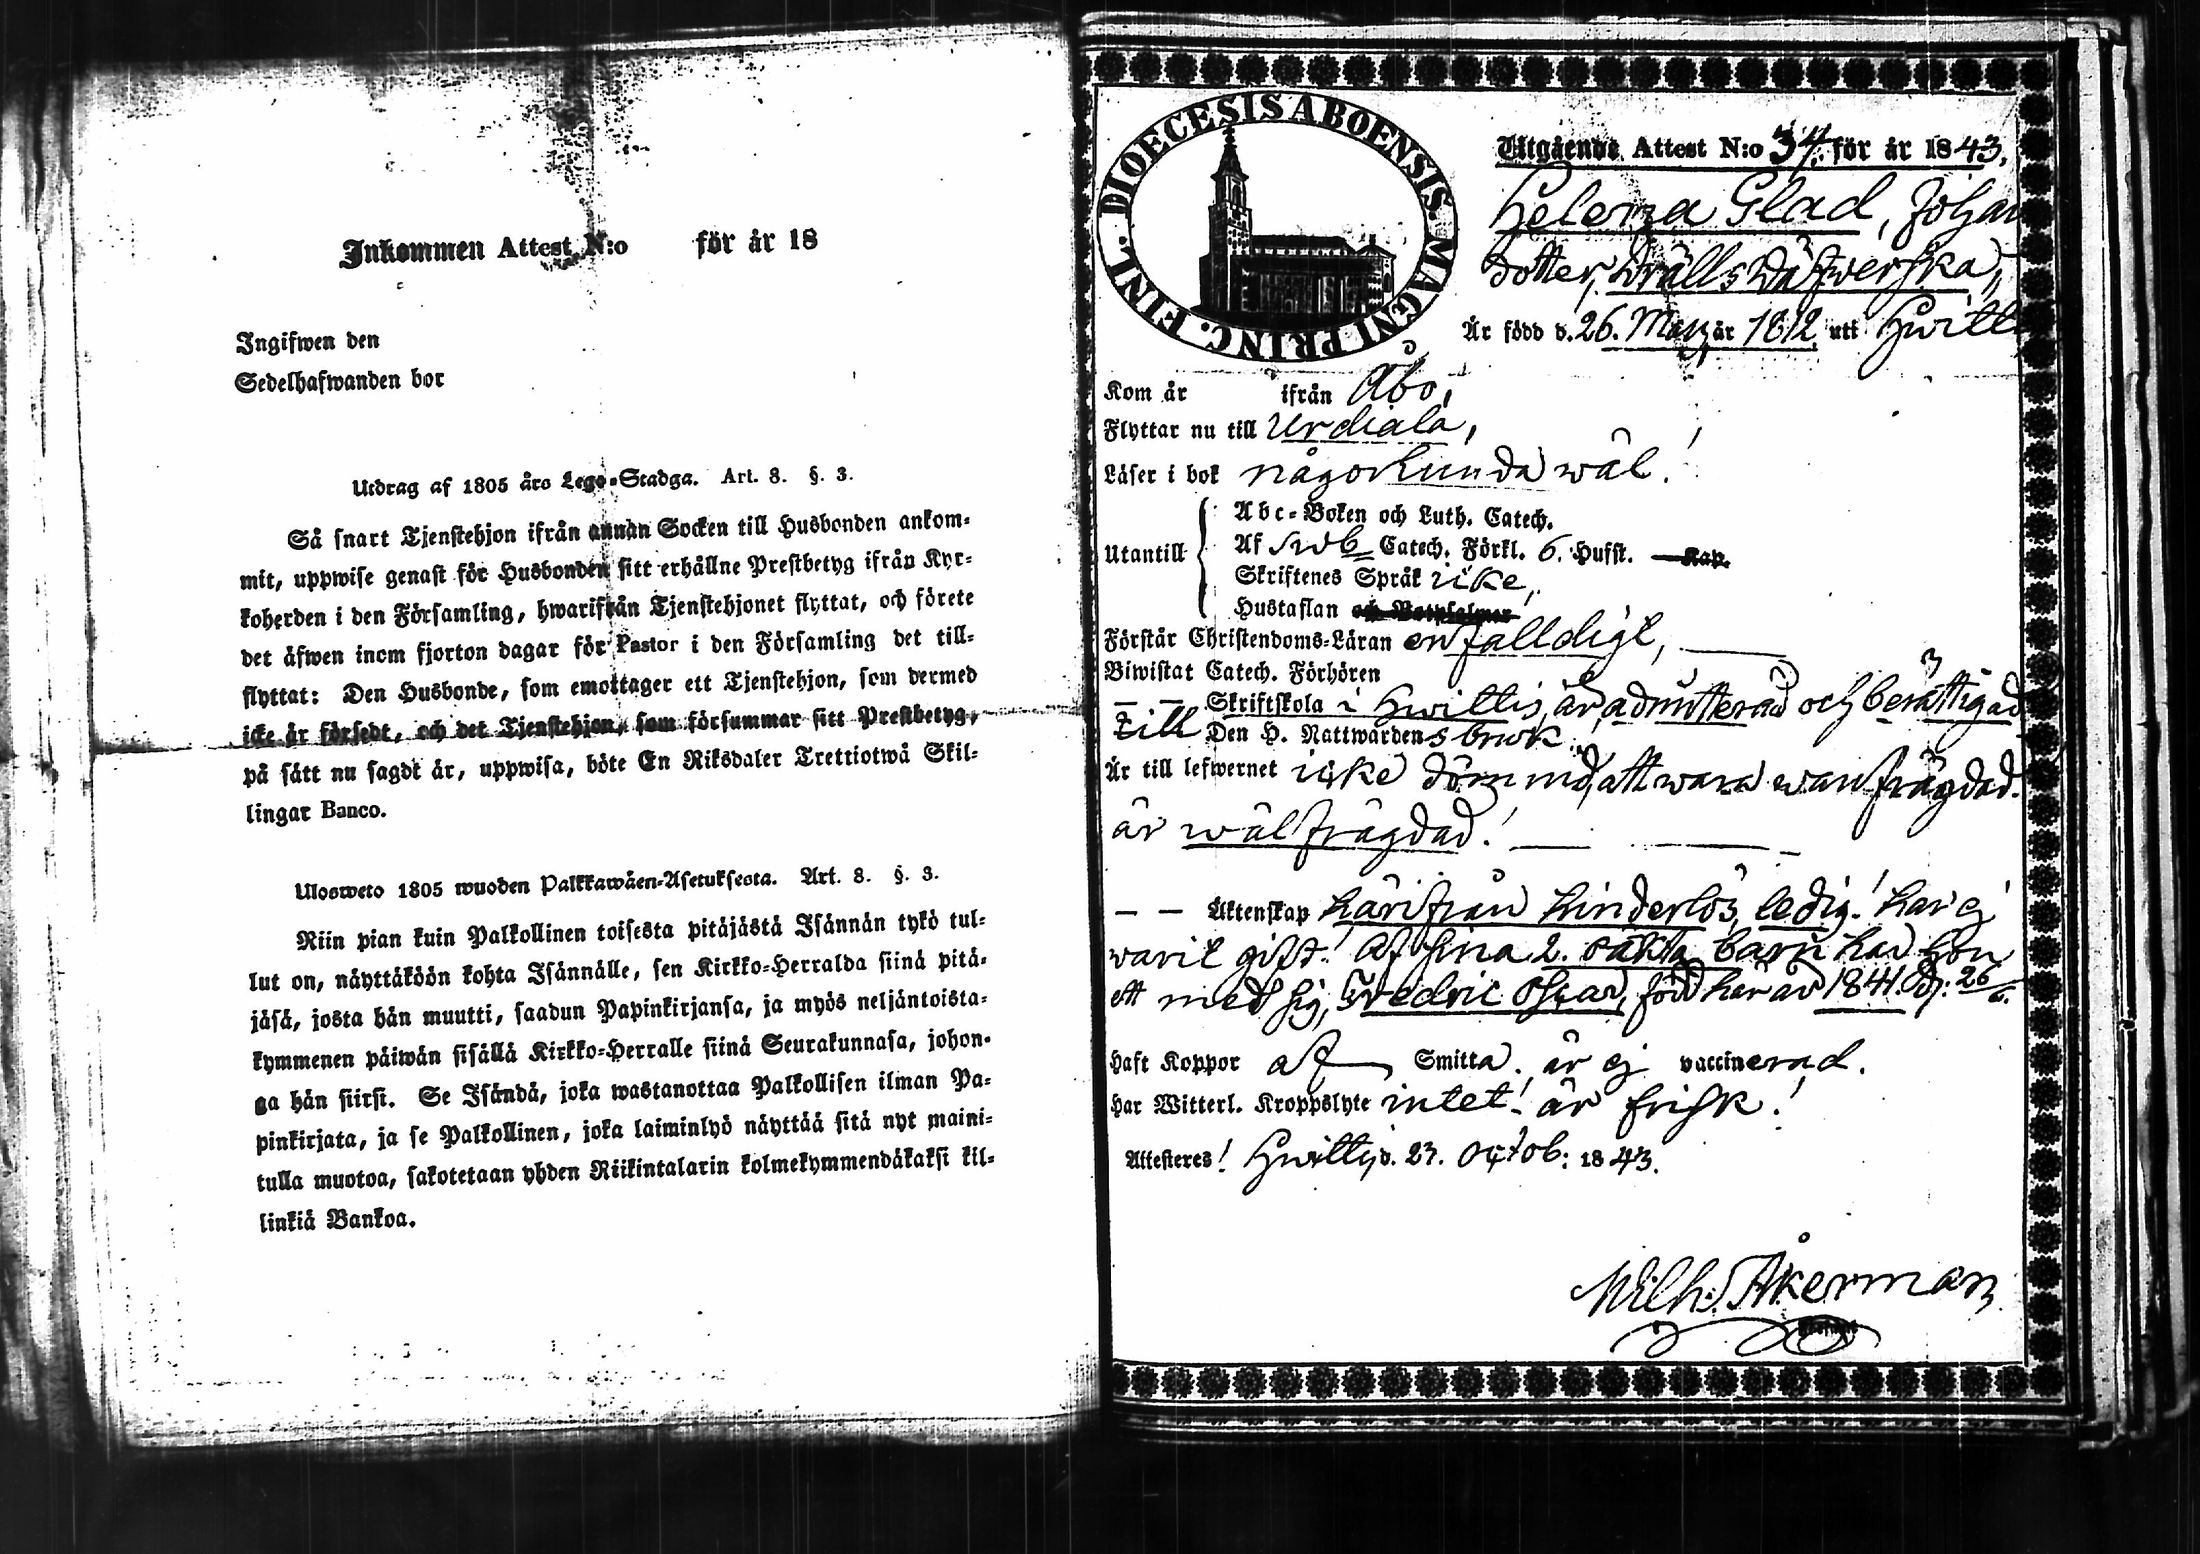 Inkommen Attest N:o för år 18
Ingifwen den
Sedelhafwanden bor
Utdrag af 1805 års Lego-Stadga. Art. 8. §. 3.
Så snart Tjenstehjon ifrån annan Socken till Husbonden ankom-
mit, uppwise genast för Husbonden sitt erhållne Prestbetyg ifrån Kyr-
koherden i den Församling, hwarifrån Tjenstehjonet flyttat, och förete
det äfwen inom fjorton dagar för Pastor i den Församling det till-
flyttat: Den Husbonde, som emottager ett Tjenstehjon, som dermed
icke är försedt, och det Tjenstehjon, som försummar sitt Prestbetyg,
på sätt nu sagdt är, uppwisa, böte En Riksdaler Trettiotwå Skil-
lingar Banco.
Ulosweto 1805 wuoden Palkkawäen-Asetuksesta. Art. 8. §. 3.
Niin pian kuin Palkollinen toisesta pitäjästä Isännän tykö tul-
lut on, näyttäköön kohta Isännälle, sen Kirkko-Herralda siinä pitä-
jäsä, josta hän muutti, saadun Papinkirjansa, ja myös neljäntoista-
kymmenen päiwän sisällä Kirkko-Herralle siinä Seurakunnasa, johon-
ga hän siirsi. Se Isändä, joka wastanottaa Palkollisen ilman Pa-
pinkirjata, ja se Palkollinen, joka laiminlyö näyttää sitä nyt maini-
tulla muotoa, sakotetaan yhden Riikintalarin kolmekymmendäkaksi kil-
linkiä Bankoa.
DIOECESIS ABOENSIS. MAGNI PRINC. FINL.
Utgående Attest N:o 34. för år 1843.
Helena Glad, Johan
dotter, Drällswäfwerska,
Är född d. 26. Mars år 1812 uti Hwitt
Kom år ifrån Åbo,
Flyttar nu till Urdiala,
Läser i bok någorlunda wäl!
Utantill
Abc-Boken och Luth. Catech.
Af Swb Catech. Förkl. 6. Hufst. Kap.
Skriftenes Språk icke,
Hustaflan och Botpsalmer
Förstår Christendoms-Läran enfalldigt,
Biwistat Catech. Förhören
— — Skriftskola i Hwittis, är admitterad och berättigad
till Den H. Nattwardens bruk.
Är till lefwernet icke dömmd, att wara wanfrägdad.
är wälfrägdad!
— — Äktenskap härifrån hinderlös, ledig! har ej
warit gift! Af sina 2. oäkta barn har hon
ett med sig, Fredric Oscar, född här år 1841. d: 26/6.
Haft Koppor af Smitta. är ej vaccinerad.
Har Witterl. Kroppslyte intet! är frisk!
Attesteres! Hwittis, d. 27. Octob: 1843.
Wilh: Åkerman